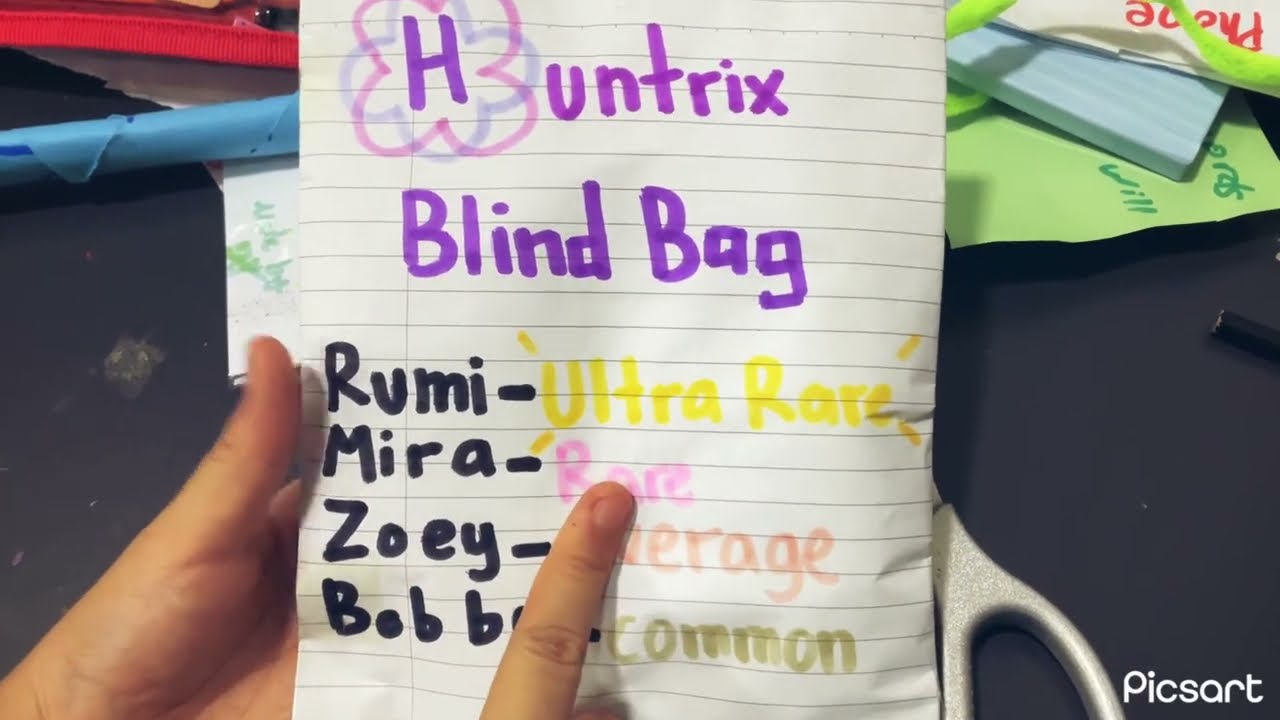 Huntrix
Blind Bag
Rumi-Ultra Rare
Mira-Rare
Zoey-
Bob
common
will
Picsart